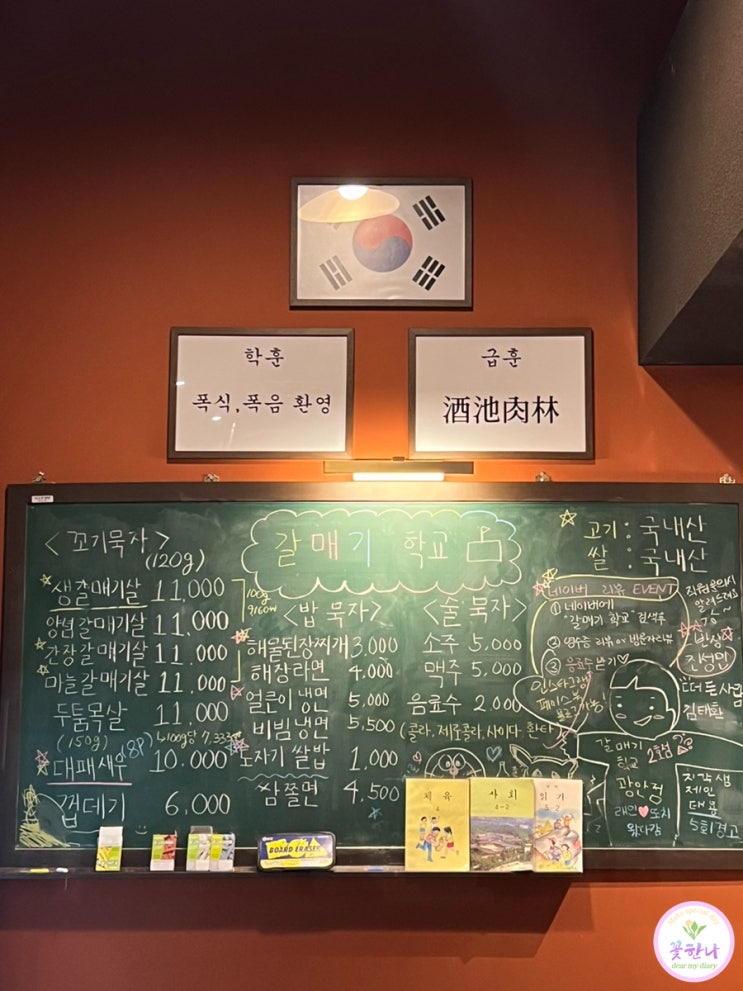 학훈
폭식,폭음 환영
급훈
酒池肉林
<꼬기묵자>
(120g)
생갈매기살 11,000
양념갈매기살 11,000
간장갈매기살 11,000
마늘갈매기살 11,000
100g
9160₩
두툼목살 11,000
(150g) 100g당 7,333
대패새우 (8P) 10,000
껍데기 6,000
갈매기 학교
<밥 묵자>
해물된장찌개 3,000
해장라면 4,000
얼큰이 냉면 5,000
비빔냉면 5,500
도자기 쌀밥 1,000
삼쫄면 4,500
<술묵자>
소주 5,000
맥주 5,000
음료수 2,000
(콜라, 제로콜라, 사이다, 환타)
고기 : 국내산
쌀 : 국내산
네이버 리뷰 EVENT
① 네이버에
"갈매기 학교" 검색후
② 영수증 리뷰 or 방문자리뷰
③ 음료수 받기♡
인스타그램
페이스북
블로그 가능!
직원문의시
알려드려요
반장
진성민
떠든사람
김태환
갈매기
학교
광안점
2호점
지각생
제인
대봉
5회 경고
체육
4
사회
4-2
읽기
BOARD ERASER
make special day
꽃한나
dear my diary